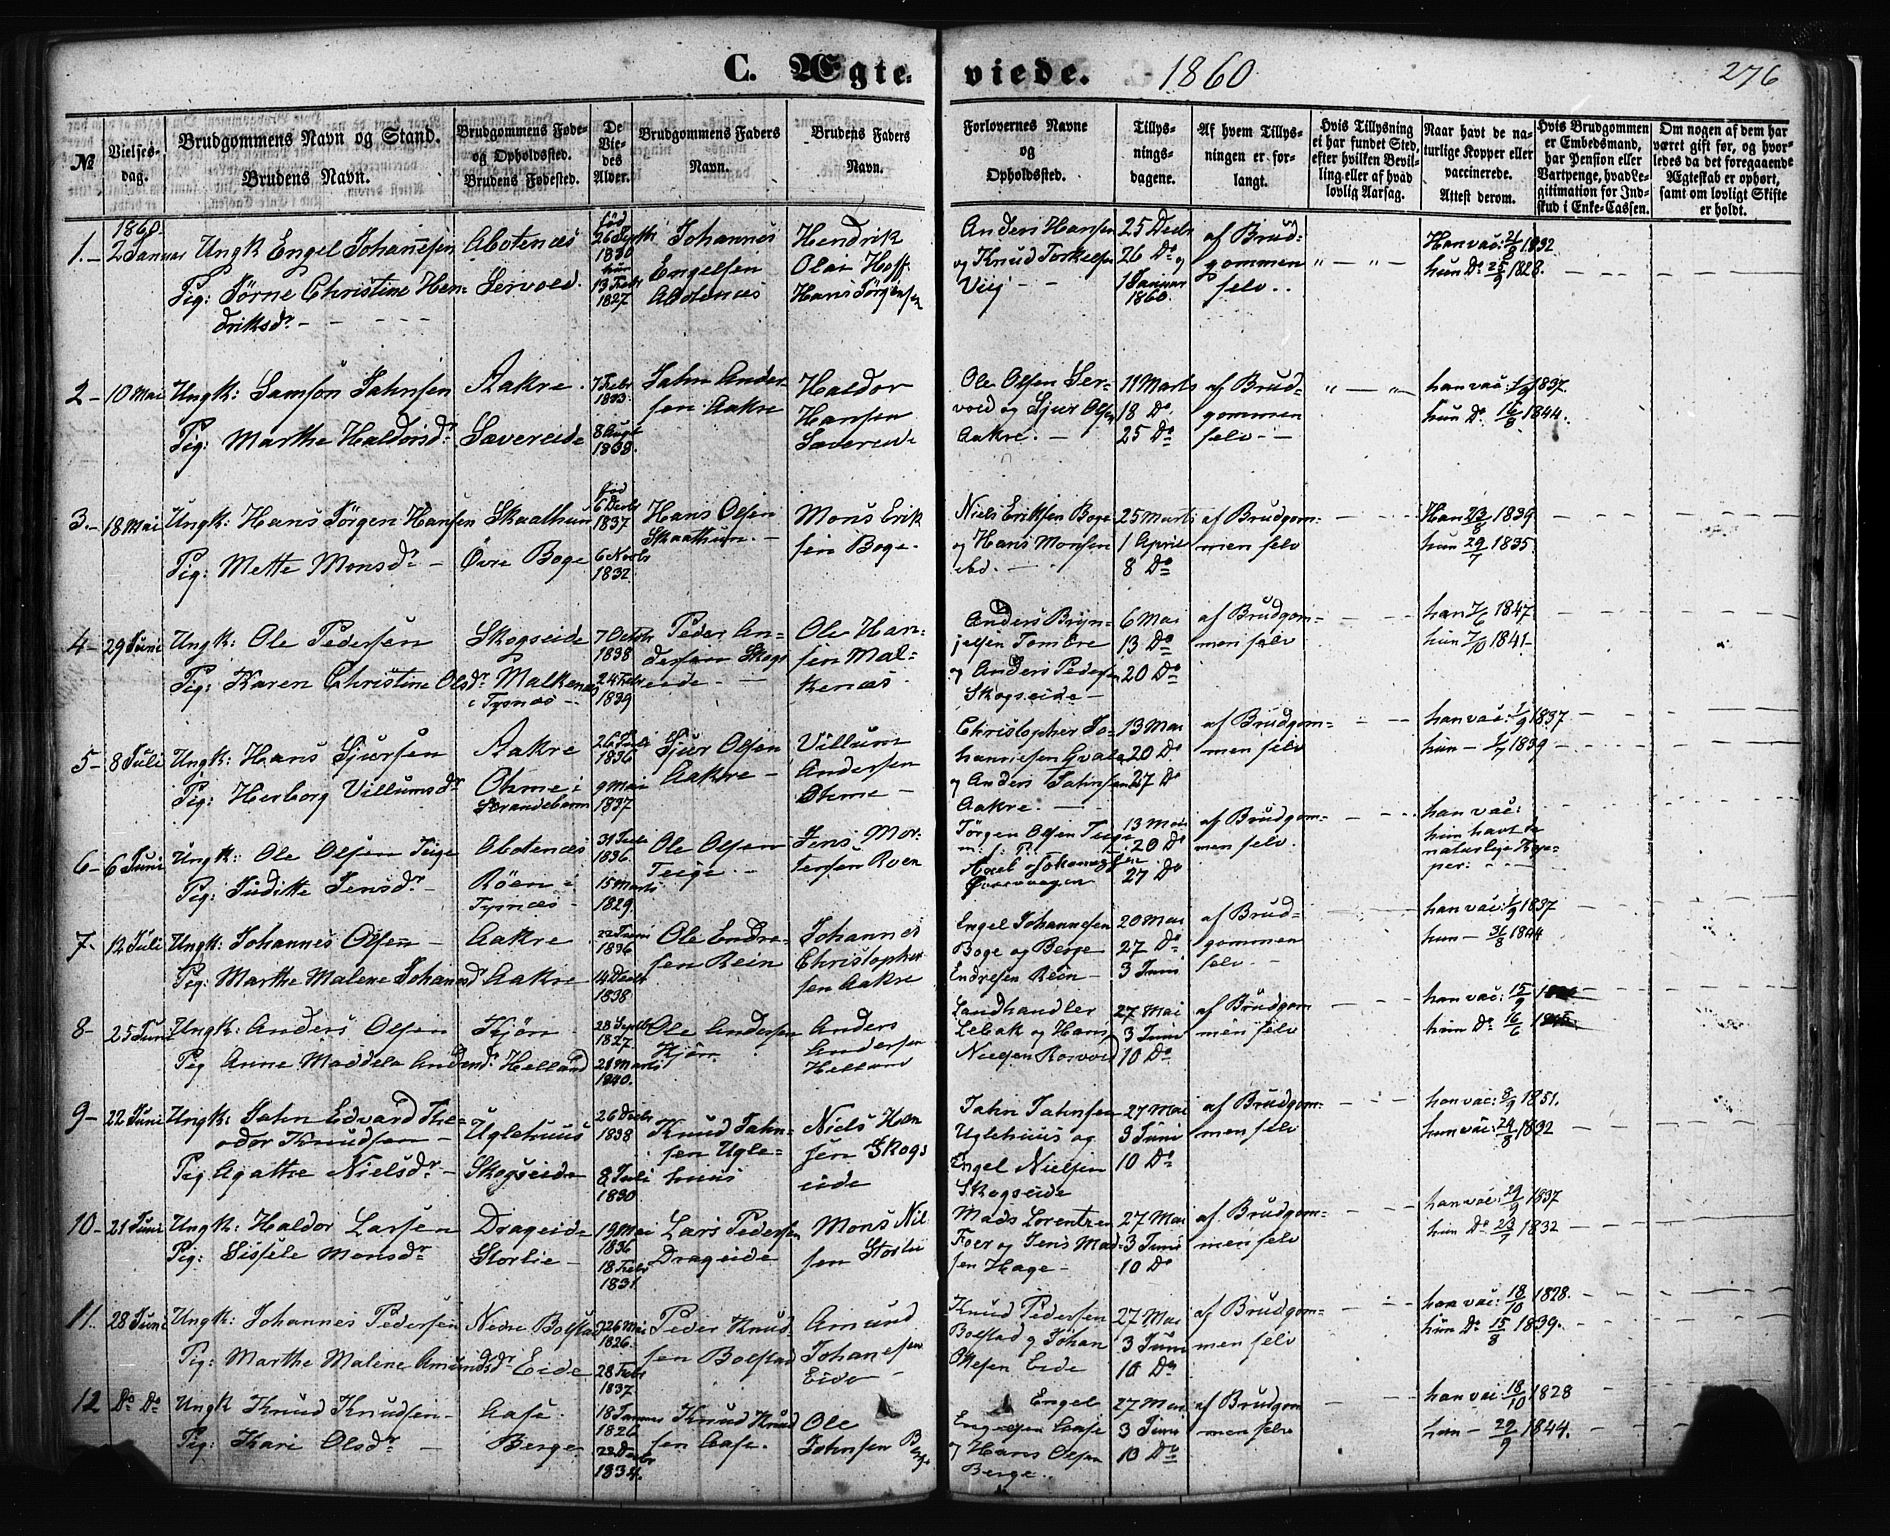 C. Ægteviede. 1860 276
№
Vielses-dag.
Brudgommens Navn og Stand.
Brudens Navn.
Brudgommens Føde-og Opholdssted.
Brudens Fødested.
De Viedes Alder.
Brudgommens Faders Navn.
Brudens Faders Navn.
Forlovernes Navne og Opholdssted.
Tillysningsdagene.
Af hvem Tillysningen er forlangt.
Hvis Tillysning ei har fundet Sted, efter hvilken Bevilling eller af hvad lovlig Aarsag.
Naar havt de naturlige Kopper eller vaccinerede. Attest derom.
Hvis Brudgommen er Embedsmand, har Pension eller Vartpenge, hvad Legitimation for Indskud i Enke-Cassen.
Om nogen af dem har været gift for, og hvorledes da det foregaaende Ægteskab er ophørt, samt om lovligt Skifte er holdt.
1860.
1. – 2 Januar Ungk Engel Johannesen Abotenæs fød 26 Septb 1830 Johannes Engelsen Abotenæs Hendrik Olai Hoff Hans Jørgensen
Pig: Jørne Christine Hendriksdr Servold hun 13 Febr 1827
Anders Hansen og Knud Torkelsen Viig 25 Decbr 26 Do og 1 Januar 1860. af Brudgommen selv Han vac: 21/8 1832 hun Do 25/9 1828.
2 – 10 Mai Ungk: Samson Jahnsen Aakre 7 Febr Jahn Andersen Aakre Haldor Hansen Sævereide
Pig: Marthe Haldorsdr Sævereide 8 Augt 1838
Ole Olsen Servold og Sjur Olsen Aakre. 11 Marts 18 Do 25 Do af Brudgommen selv han vac: 1/9 1837. hun Do 16/8 1844.
3. – 18 Mai Ungk: Hans Jørgen Hansen Skaathun fød 6 Decbr 1837 Hans Olsen Skaathun. Mons Eriksen Boge.
Pig: Mette Monsdr – Øvre Boge 6 Novbr 1832
Niels Eriksen Boge og Hans Monsen ibd. 25 Marts 1 April 8 Do af Brudgommen selv Han 23/8 1839 hun 29/7 1835
4 – 29 Juni Ungk: Ole Pedersen Skogseide 7 Octobr 1838 Peder Andersen Skogseide Ole Hansen Malkenæs
Pig: Karen Christine Olsdr Malkenæs i Tysnæs 24 Febr 1839
Anders Brynjelsen Tombre og Anders Pedersen Skogseide 6 Mai 13 Do 20 Do af Brudgommen selv han 7/6 1847. hun 7/10 1841
5 – 8 Juli Ungk: Hans Sjursen Aakre 26 Juli 1836 Sjur Olsen Aakre Villum Andersen Ohme
Pig: Herborg Villumsdr Ohme i Strandebarm 9 Mai 1837
Christopher Johannesen Gvale og Anders Jahnsen Aakre. 13 Mai 20 Do 27 Do af Brudgommen selv han vac: 1/9 1837 hun – 1839
6 – 6 Juni Ungk: Ole Olsen Teige Abotenæs 1836. Ole Olsen Teige Jens Mortensen Roen
Pig: Juditte Jensdr Røen i Tysnæs 15 Marts 1829.
Jørgen Olsen Teige 13 Mai 20 Do 27 Do af Brudgommen selv. han vac: hun havt de naturlige Kopper:
7 – 12 Juli Ungk: Johannes Olsen Aakre 22 Juni 1836 Ole Endresen Rein Johannes Christophersen Aakre
Pig: Marthe Malene Johansdr Aakre 14 Decbr 1838.
Engel Johannesen Boge og Berge Endresen Rein 20 Mai 27 Do 3 Juni af Brudgommen selv han vac: 1/9 1837 hun – 31/8 1844
8 – 25 Juni Ungk: Anders Olsen Kjøn 28 Septb 1827. Ole Andersen Kjøn Anders Andersen Helland
Pig Anne Maddela Andersdr Helland 21 Marts 1840.
Landhandler Lebak og Hans Nielsen Rosvold 27 Mai 3 Juni 10 Do af Brudgommen selv han vac: 15/9 hun Do 16/6
9 – 22 Juni Ungk: Jahn Edvard Theodor Knudsen Uglehuus 26 Decbr 1838 Knud Jahnsen Uglehuus Niels Hansen Skogseide
Pig Agathe Nielsdr Skogseide 8 Juli 1830
Jahn Jahnsen Uglehuus og Engel Nielsen Skogseide 27 Mai 3 Juni 10 Do af Brudgommen selv han vac: 1851. hun vac: 24/8 1832
10 – 21 Juni Ungk: Haldor Larsen Drageide 19 Mai 1836 Lars Pedersen Drageide Mons Nilsen Storlie
Pig: Sissele Monsdr Storlie 18 Febr 1831.
Mads Lorentzen Foer og Jens Madsen Hage 27 Mai 3 Juni 10 Do af Brudgommen selv han vac: 29/9 1837 hun Do 23/7 1832
11. 28 Juni Ungk: Johannes Pedersen Nedre Bolstad 26 Mai 1826. Peder Knudsen Bolstad Amund Johanesen Eide
Pig: Marthe Malene Amundsdr Eide 28 Febr 1837.
Knud Pedersen Bolstad og Johan Olesen Eide 27 Mai 3 Juni 10 Do af Brudgommen selv han vac: 18/10 1828. hun Do 15/8 1839.
12 Do Do Ungk Knud Knudsen Aase 18 Januar 1826 Knud Knudsen Aase. Ole Johnsen Berge
Pig: Kari Olsdr Berge 22 Decbr 1834.
Engel Engelsen Aase og Hans Olsen Berge. 27 Mai 3 Juni 10 Do af Brudgommen selv han vac: 18/10 1828 hun – 29/9 1844.